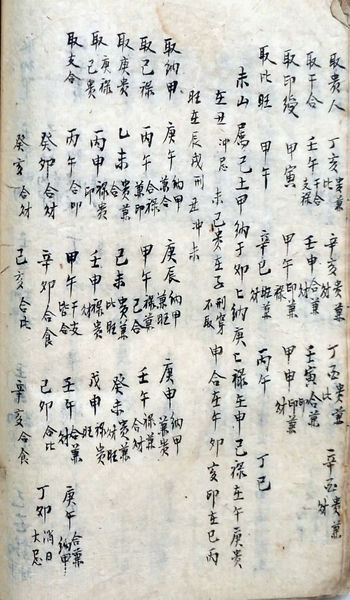 取貴人 丁亥貴兼比 辛亥貴兼財 丁酉貴兼比 辛酉貴兼財
取干合 壬午干合支祿 壬申合兼財 壬寅合兼印
取印綬 甲寅 甲午祿兼印 甲申印兼財
取比旺 甲午 辛巳旺兼財 丙午 丁巳
未山屬己土甲納于卯乚納庚乚祿在申己祿在午庚貴
在丑冲忌 未己貴在子刑穿不取 申合在午卯亥卯在巳丙
旺在辰戌刑丑冲未
取納甲 庚午納甲兼合 庚辰納甲兼旺 庚申納甲兼貴
取己祿 丙午祿合兼印 甲午祿兼己合 壬午祿兼合財
取庚貴 乚未貴兼合 己未貴兼比旺 癸未貴兼財旺
取庚祿己貴 丙申祿貴印 壬申祿貴財 戊申祿貴旺
取支合 丙午合印 甲午干支皆合 壬午合財 庚午合兼納甲
癸卯合財 辛卯合食 己卯合比 丁卯消日大忌
癸亥合財 己亥合比 辛亥合食